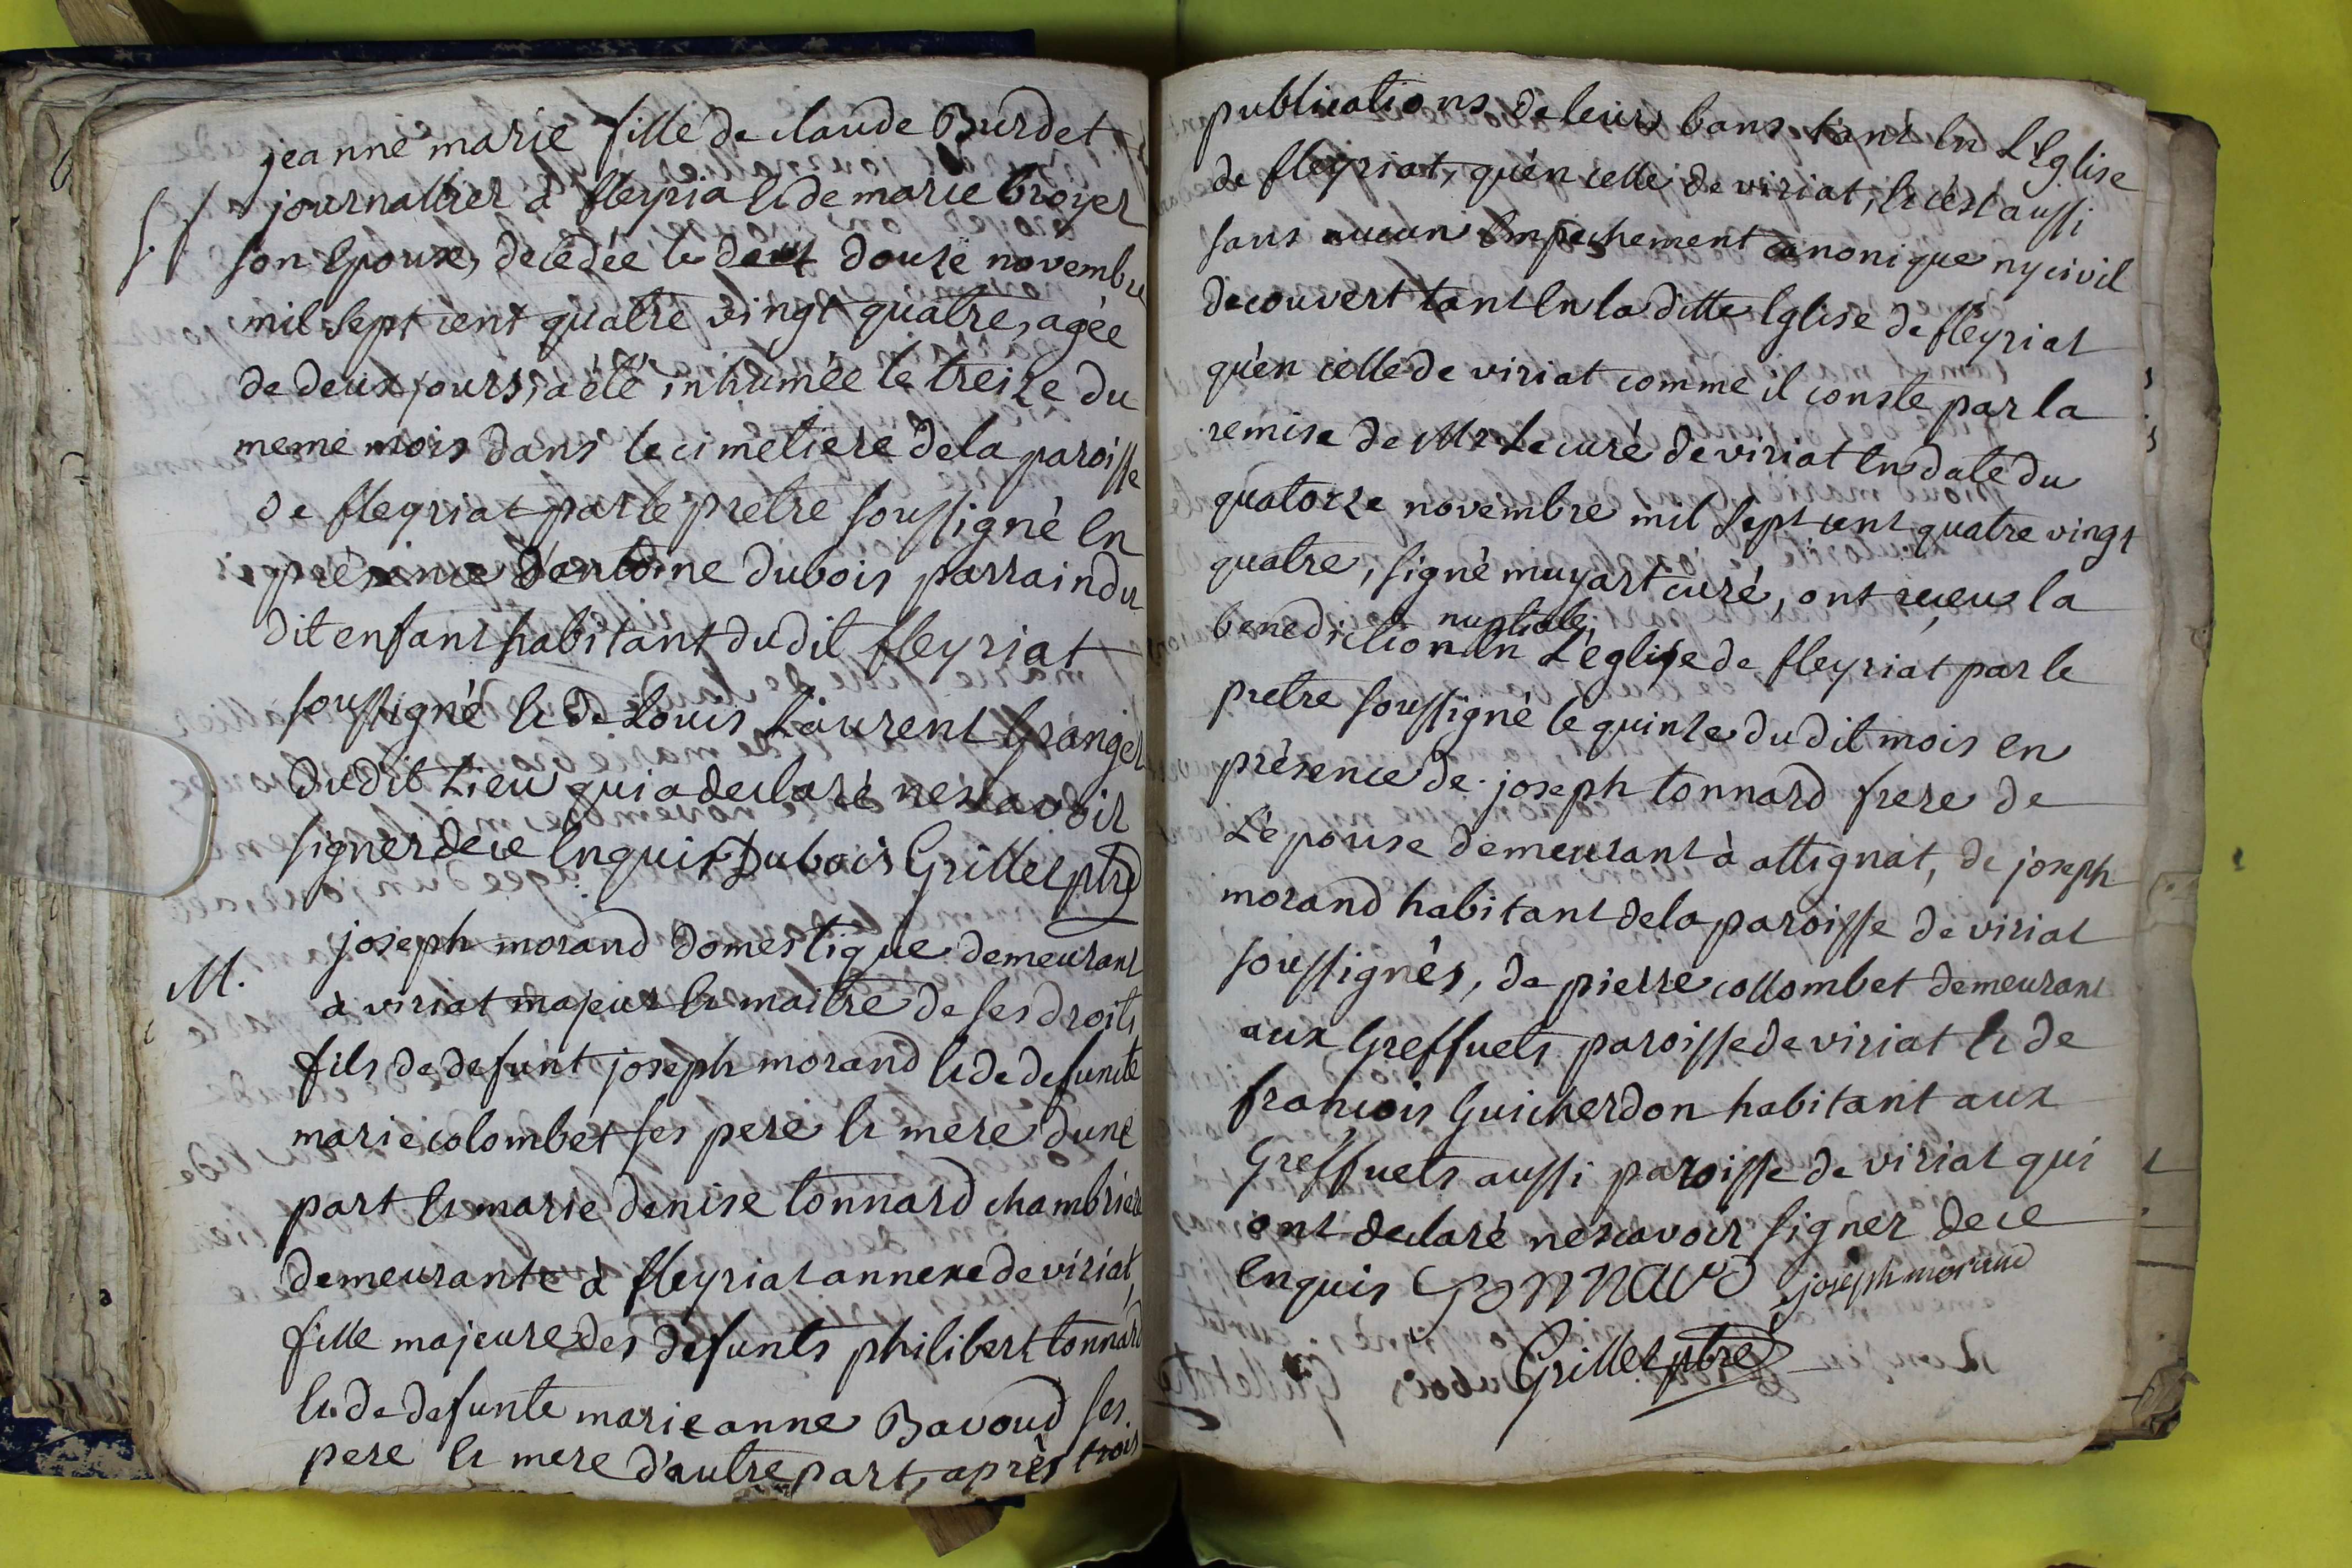 jeanne marie fille de claude Burdet
S. journallier à fleyria & de marie broyer
son Epouse, decedée le deux douze novembre
mil sept cent quatre vingt quatre, agée
de deux jours, a été inhumée le treize du
meme mois dans le cimetiere de la paroisse
de fleyriat par le pretre soussigné En
présence d'antoine dubois parrain du
dit enfant habitant du dit fleyriat
soussigné & de Louis Laurent Granger
du dit Lieu qui a declaré ne scavoir
signer de ce Enquis Dubois Grillet ptre
M. joseph morand domestique demeurant
à viriat majeur & maitre de ses droits,
fils de defunt joseph morand & de defunte
marie colombet ses pere & mere d'une
part & marie denise tonnard chambriere
demeurante à fleyriat annexe de viriat,
fille majeure des defunts philibert tonnard
& de defunte marie anne Bavoud ses
pere & mere d'autre part, après trois
publications de leurs bans tant En L'Eglise
de fleyriat, qu'en celle de viriat, & c'est aussi
sans aucun Empechement canonique ny civil
decouvert tant En la ditte Eglise de fleyriat
qu'en celle de viriat comme il conste par la
remise de Mr Le curé de viriat En date du
quatorze novembre mil sept cent quatre vingt
quatre, signé muyart curé, ont receu la
benediction nuptiale, En L'eglise de fleyriat par le
pretre soussigné le quinze du dit mois en
présence de joseph tonnard frere de
L'épouse demeurant à attignat, de joseph
morand habitant de la paroisse de viriat
soussignés, de pierre collombet demeurant
aux Greffuets paroisse de viriat & de
francois Guicherdon habitant aux
Greffuets aussi paroisse de viriat qui
ont declaré ne scavoir signer de ce
Enquis Tonnard joseph morand
Grillet ptre